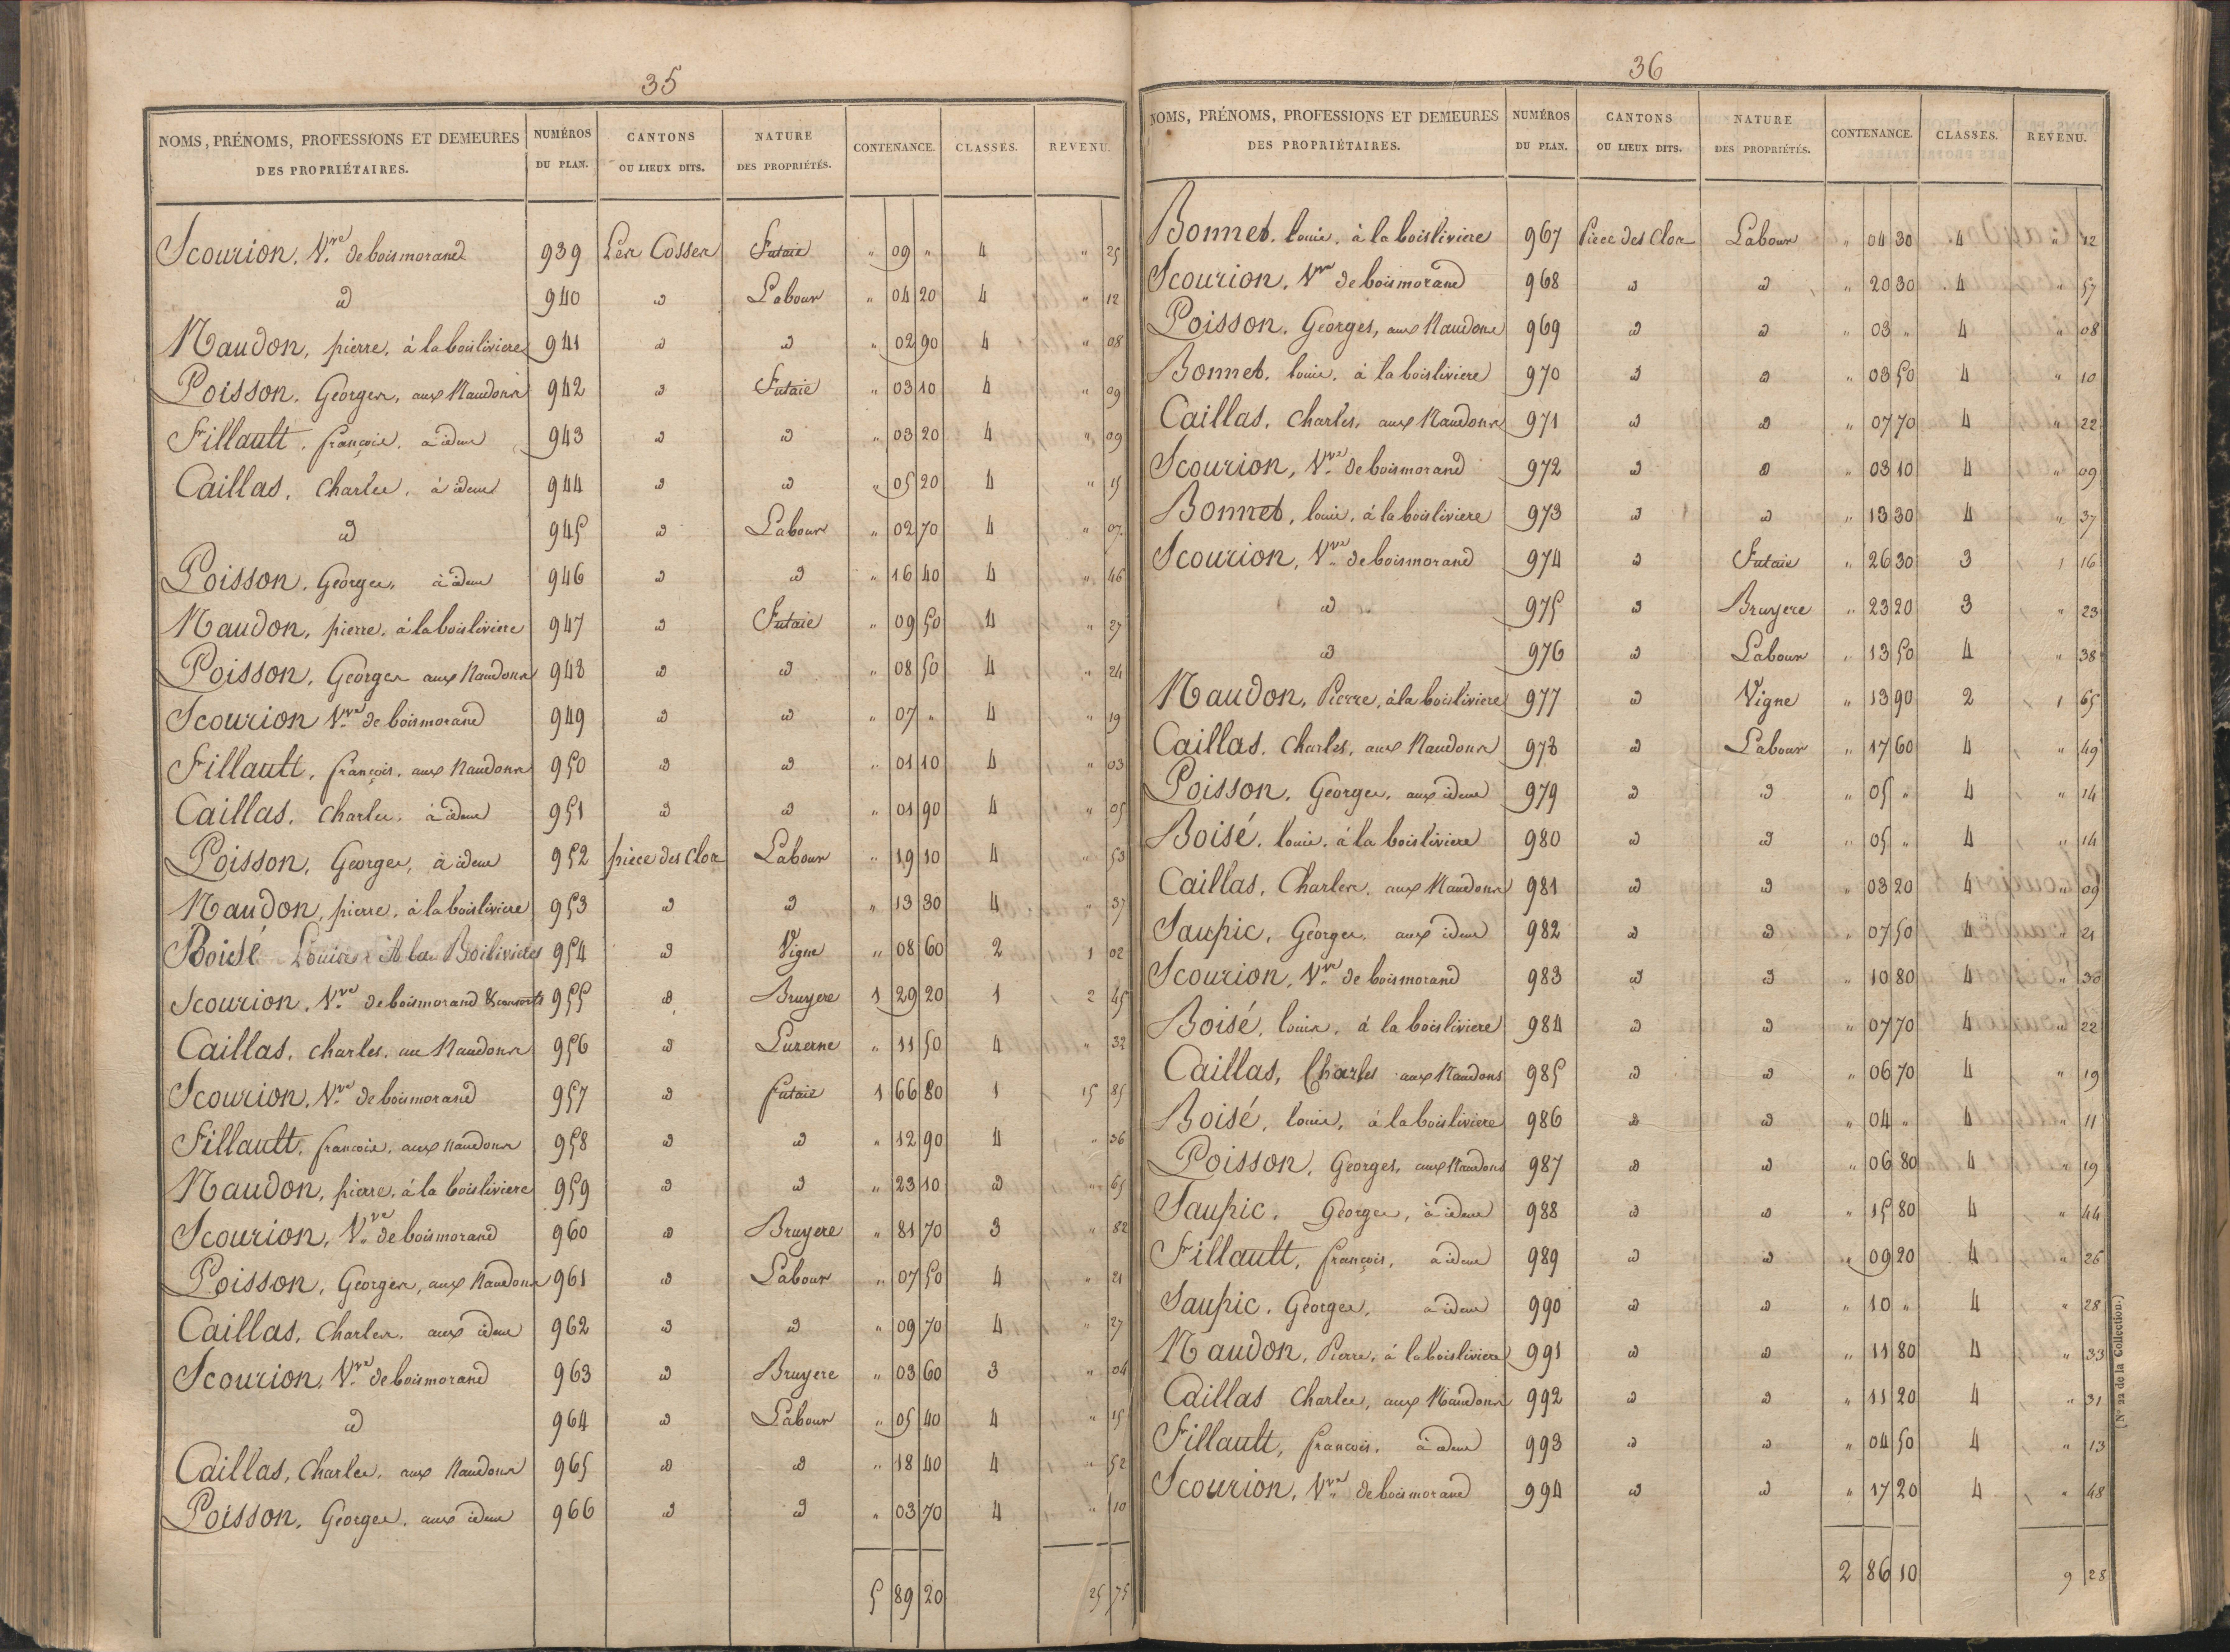 35
NOMS, PRÉNOMS, PROFESSIONS ET DEMEURES DES PROPRIÉTAIRES. NUMÉROS DU PLAN. CANTONS OU LIEUX DITS. NATURE DES PROPRIÉTÉS. CONTENANCE. CLASSES. REVENU.
Scourion, Vve de boismorand 939 Les Cosses Futaie " 09 " 4 " 25
id 940 id Labour " 04 20 4 " 12
Naudon, pierre, à la boisliviere 941 id id " 02 90 4 " 08
Poisson, Georges, aux Naudons 942 id Futaie " 03 10 4 " 09
Fillault, françois, à idem 943 id id " 03 20 4 " 09
Caillas, Charles, à idem 944 id id " 05 20 4 " 15
id 945 id Labour " 02 70 4 " 07
Poisson, Georges, à idem 946 id id " 16 40 4 " 46
Naudon, pierre, à la boisliviere 947 id Futaie " 09 50 4 " 27
Poisson, Georges aux Naudons 948 id id " 08 50 4 " 24
Scourion Vve de boismorand 949 id id " 07 " 4 " 19
Fillault, françois, aux Naudons 950 id id " 01 10 4 " 03
Caillas, Charles, à idem 951 id id " 01 90 4 " 05
Poisson, Georges, à idem 952 piece des Clos Labour " 19 10 4 " 53
Naudon, pierre, à la boisliviere 953 id id " 13 30 4 " 37
Boisé Louis A la Boiliviere 954 id Vigne " 08 60 2 1 02
Scourion, Vve de boismorand & consorts 955 id Bruyere 1 29 20 1 2 45
Caillas, charles, au Naudons 956 id Luzerne " 11 50 4 " 32
Scourion, Vve de boismorand 957 id futaie 1 66 80 1 15 85
Fillault, francois, aux naudons 958 id id " 12 90 4 " 36
Naudon, pierre, à la boisliviere 959 id id " 23 10 id " 65
Scourion, Vve de boismorand 960 id Bruyere " 81 70 3 " 82
Poisson, Georges, aux Naudons 961 id Labour " 07 50 4 " 21
Caillas, Charles, aux idem 962 id id " 09 70 4 " 27
Scourion, Vve de boismorand 963 id Bruyere " 03 60 3 " 04
id 964 id Labour " 05 40 4 " 15
Caillas, Charles, aux Naudons 965 id id " 18 40 4 " 52
Poisson, Georges, aux idem 966 id id " 03 70 4 " 10
5 89 20 25 75
36
NOMS, PRÉNOMS, PROFESSIONS ET DEMEURES DES PROPRIÉTAIRES. NUMÉROS DU PLAN. CANTONS OU LIEUX DITS. NATURE DES PROPRIÉTÉS. CONTENANCE. CLASSES. REVENU.
Bonnet, louis, à la boisliviere 967 Piece des Clos Labour " 04 30 4 " 12
Scourion, Vve de boismorand 968 id id " 20 30 4 " 57
Poisson, Georges, aux Naudons 969 id id " 03 " 4 " 08
Bonnet, louis, à la boisliviere 970 id id " 03 50 4 " 10
Caillas, Charles, aux Naudons 971 id id " 07 70 4 " 22
Scourion, Vve de boismorand 972 id id " 03 10 4 " 09
Bonnet, louis, à la boisliviere 973 id id " 13 30 4 " 37
Scourion, Vve de boismorand 974 id Futaie " 26 30 3 1 16
id 975 id Bruyere " 23 20 3 " 23
id 976 id Labour " 13 50 4 " 38
Naudon, Pierre, à la boisliviere 977 id Vigne " 13 90 2 1 65
Caillas, Charles, aux Naudons 978 id Labour " 17 60 4 " 49
Poisson, Georges, aux idem 979 id id " 05 " 4 " 14
Boisé, louis, à la boisliviere 980 id id " 05 " 4 " 14
Caillas, Charles, aux Naudons 981 id id " 03 20 4 " 09
Saupic, Georges, aux idem 982 id id " 07 50 4 " 21
Scourion, Vve de boismorand 983 id id " 10 80 4 " 30
Boisé, louis, à la boisliviere 984 id id " 07 70 4 " 22
Caillas, Charles aux Naudons 985 id id " 06 70 4 " 19
Boisé, louis, à la boisliviere 986 id id " 04 " 4 " 11
Poisson, Georges, aux Naudons 987 id id " 06 80 4 " 19
Saupic, Georges, à idem 988 id id " 15 80 4 " 44
Fillault, françois, à idem 989 id id " 09 20 4 " 26
Saupic, Georges, à idem 990 id id " 10 " 4 " 28
Naudon, Pierre, à la boisliviere 991 id id " 11 80 4 " 33
Caillas Charles, aux Naudons 992 id id " 11 20 4 " 31
Fillault, francois, à idem 993 id id " 04 50 4 " 13
Scourion, Vve de boismorand 994 id id " 17 20 4 " 48
2 86 10 9 28
(N° 22 de la Collection.)